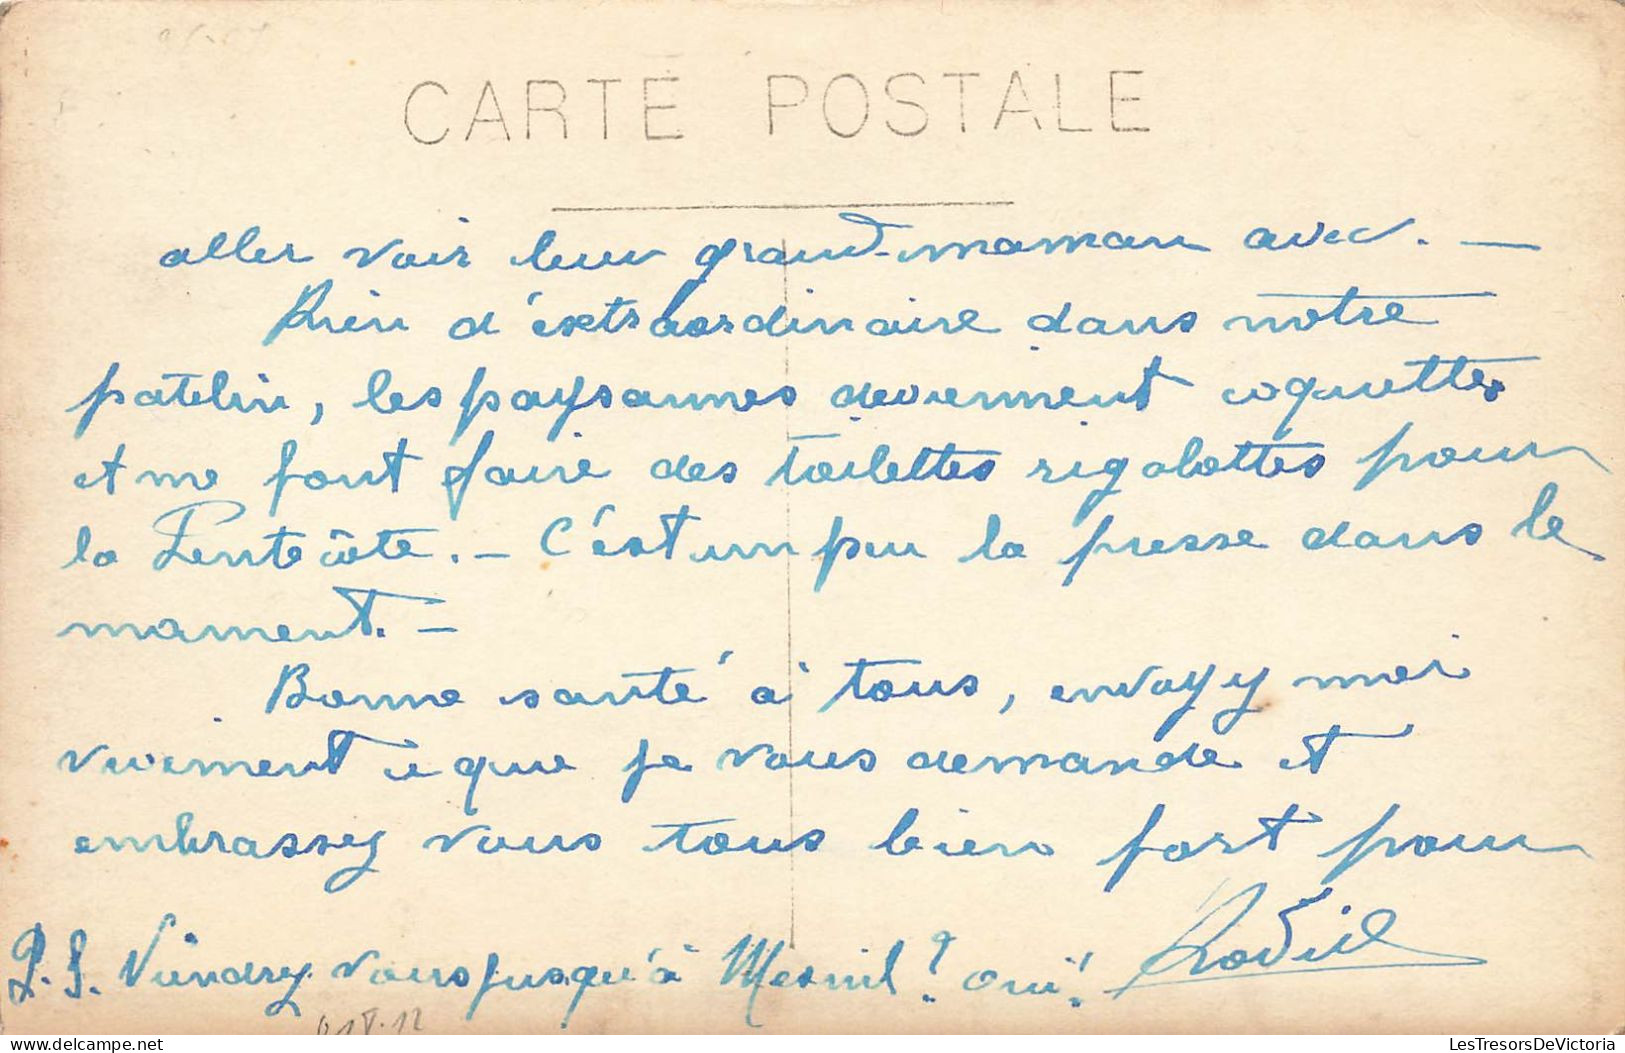 CARTE POSTALE
aller voir leur grand-maman avec. —
Rien d'extraordinaire dans notre
patelin, les paysannes deviennent coquettes
et me font faire des toilettes rigolottes pour
la Pentecôte. — C'est un peu la presse dans le
moment. —
Bonne santé à tous, envoyez moi
vivement ce que je vous demande et
embrassez vous tous bien fort pour
P.S. Viendrez vous jusqu'à Mesnil? oui!
LesTresorsDeVictoria
LesTresorsDeVictoria.com